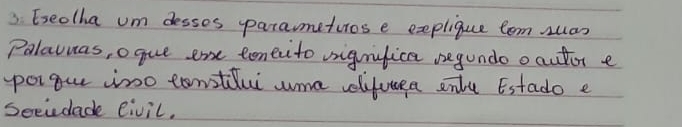 3. Escolha um desses parametros e explique com suas
Palavras, o que esse conceito significa segundo o autor e
por que isso constitui uma diferença entre Estado e
Sociedade Civil.